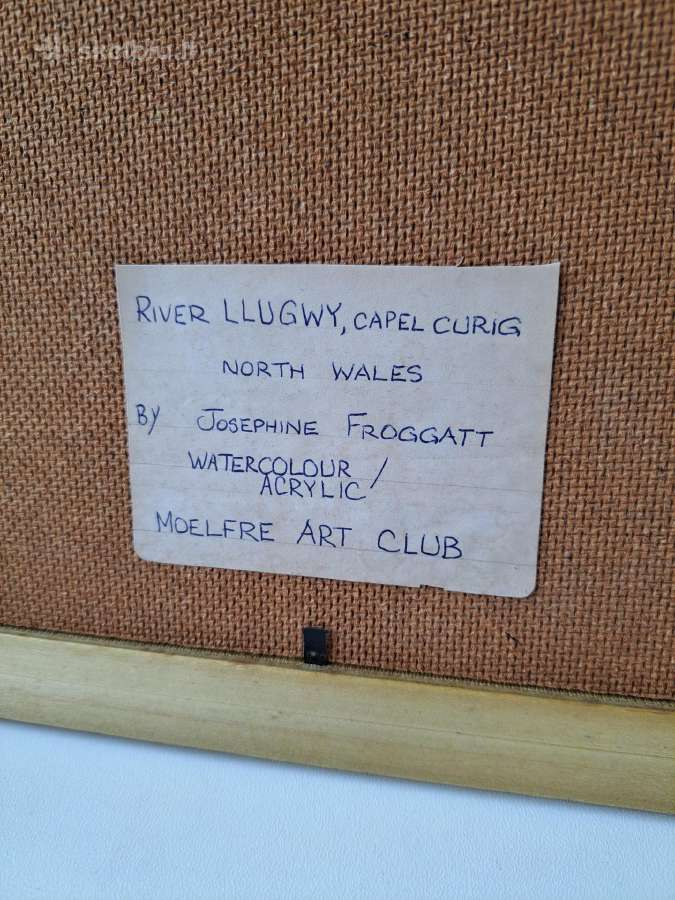 skelbiu.lt
RIVER LLUGWY, CAPEL CURIG
NORTH WALES
BY JOSEPHINE FROGGATT
WATERCOLOUR /
ACRYLIC
MOELFRE ART CLUB